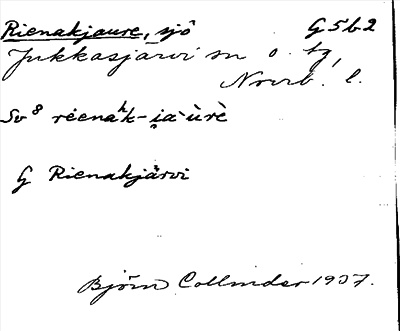 Rienakjaure, sjö G5b2
Jukkasjärvi sn o. tg,
Norrb. l.
Sv⁸ rėenaʰk-i̯a`ùrè
G Rienakjärvi
Björn Collinder 1937.